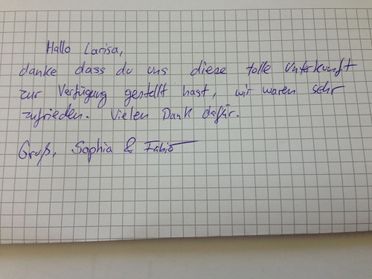 Hallo Larisa,
danke dass du uns diese tolle Unterkunft
zur Verfügung gestellt hast, wir waren sehr
zufrieden. Vielen Dank dafür.
Gruß, Sophia & Fabio